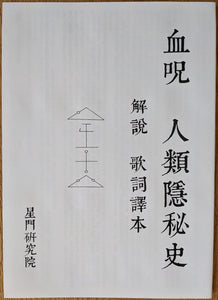 血呪　人類隱秘史
解說　歌詞譯本
星門研究院